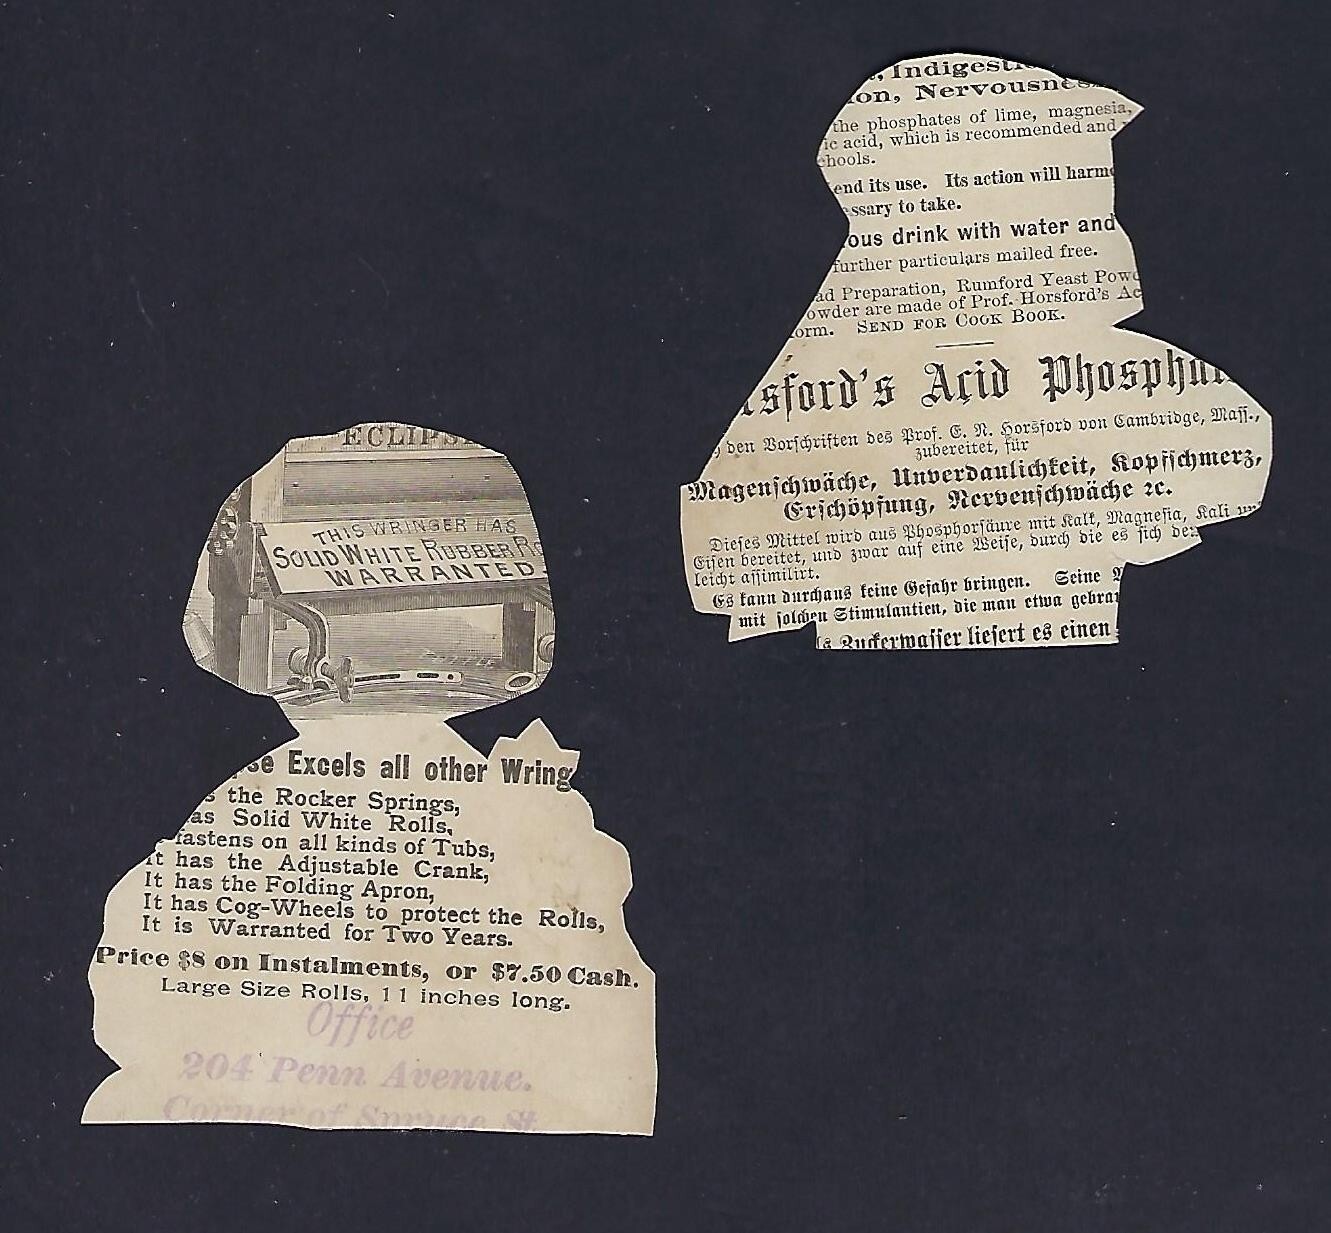 Indigest
on, Nervousnes
the phosphates of lime, magnesia,
ic acid, which is recommended and
hools.
end its use. Its action will harm
ssary to take.
ous drink with water and
further particulars mailed free.
ad Preparation, Rumford Yeast Powd
owder are made of Prof. Horsford's Ac
orm. SEND FOR COOK BOOK.
sford's Acid Phospha
den Vorschriften des Prof. E. N. Horsford von Cambridge, Mass.,
zubereitet, für
Magenschwäche, Unverdaulichkeit, Kopfschmerz,
Erschöpfung, Nervenschwäche ꝛc.
Dieses Mittel wird aus Phosphorsäure mit Kalk, Magnesia, Kali
Eisen bereitet, und zwar auf eine Weise, durch die es sich
leicht assimilirt.
Es kann durchaus keine Gefahr bringen. Seine
mit solchen Stimulantien, die man etwa gebra
Zuckerwasser liefert es einen
ECLIPS
THIS WRINGER HAS
SOLID WHITE RUBBER RO
WARRANTED
se Excels all other Wring
s the Rocker Springs,
as Solid White Rolls,
fastens on all kinds of Tubs,
It has the Adjustable Crank,
It has the Folding Apron,
It has Cog-Wheels to protect the Rolls,
It is Warranted for Two Years.
Price $8 on Instalments, or $7.50 Cash.
Large Size Rolls, 11 inches long.
Office
204 Penn Avenue.
Corner of Spruce St.